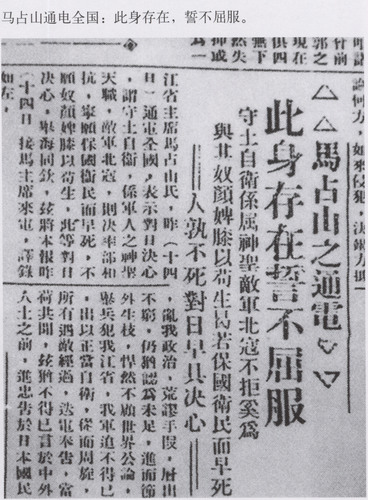 马占山通电全国：此身存在，誓不屈服。
時記
付前
郭之
現在
俱四
無下
然失
抑或
爲一
論何方，如來侵犯，決竭力抵一
△△馬占山之通電▽▽
此身存在誓不屈服
守土自衛係屬神聖敵軍北寇不拒奚爲
與其奴顏婢膝以苟生曷若保國衛民而早死
——人孰不死對日早具決心——
江省主席馬占山氏，昨（十四
日）通電全國，表示對日決心
，謂守土自衛，係軍人之神聖
天職，敵軍北寇，則決率部相
抗，寧願保國衛民而早死，不
願奴顏婢膝以苟生，此等對日
決心，舉海同欽，茲將本報昨
（十四日）接馬主席來電，譯錄
如左，
亂我政治，荒謬手段，層出
不窮，仍猶認爲未足，進而節
外生枝，悍然不顧世界公論，
舉兵犯我江省，我軍迫不得已
，出以正當自衛，從而周旋，
所有遇敵經過，迭電奉告，當
荷共聞，茲猶不得已言於中外
人士之前，進忠告於日本國民